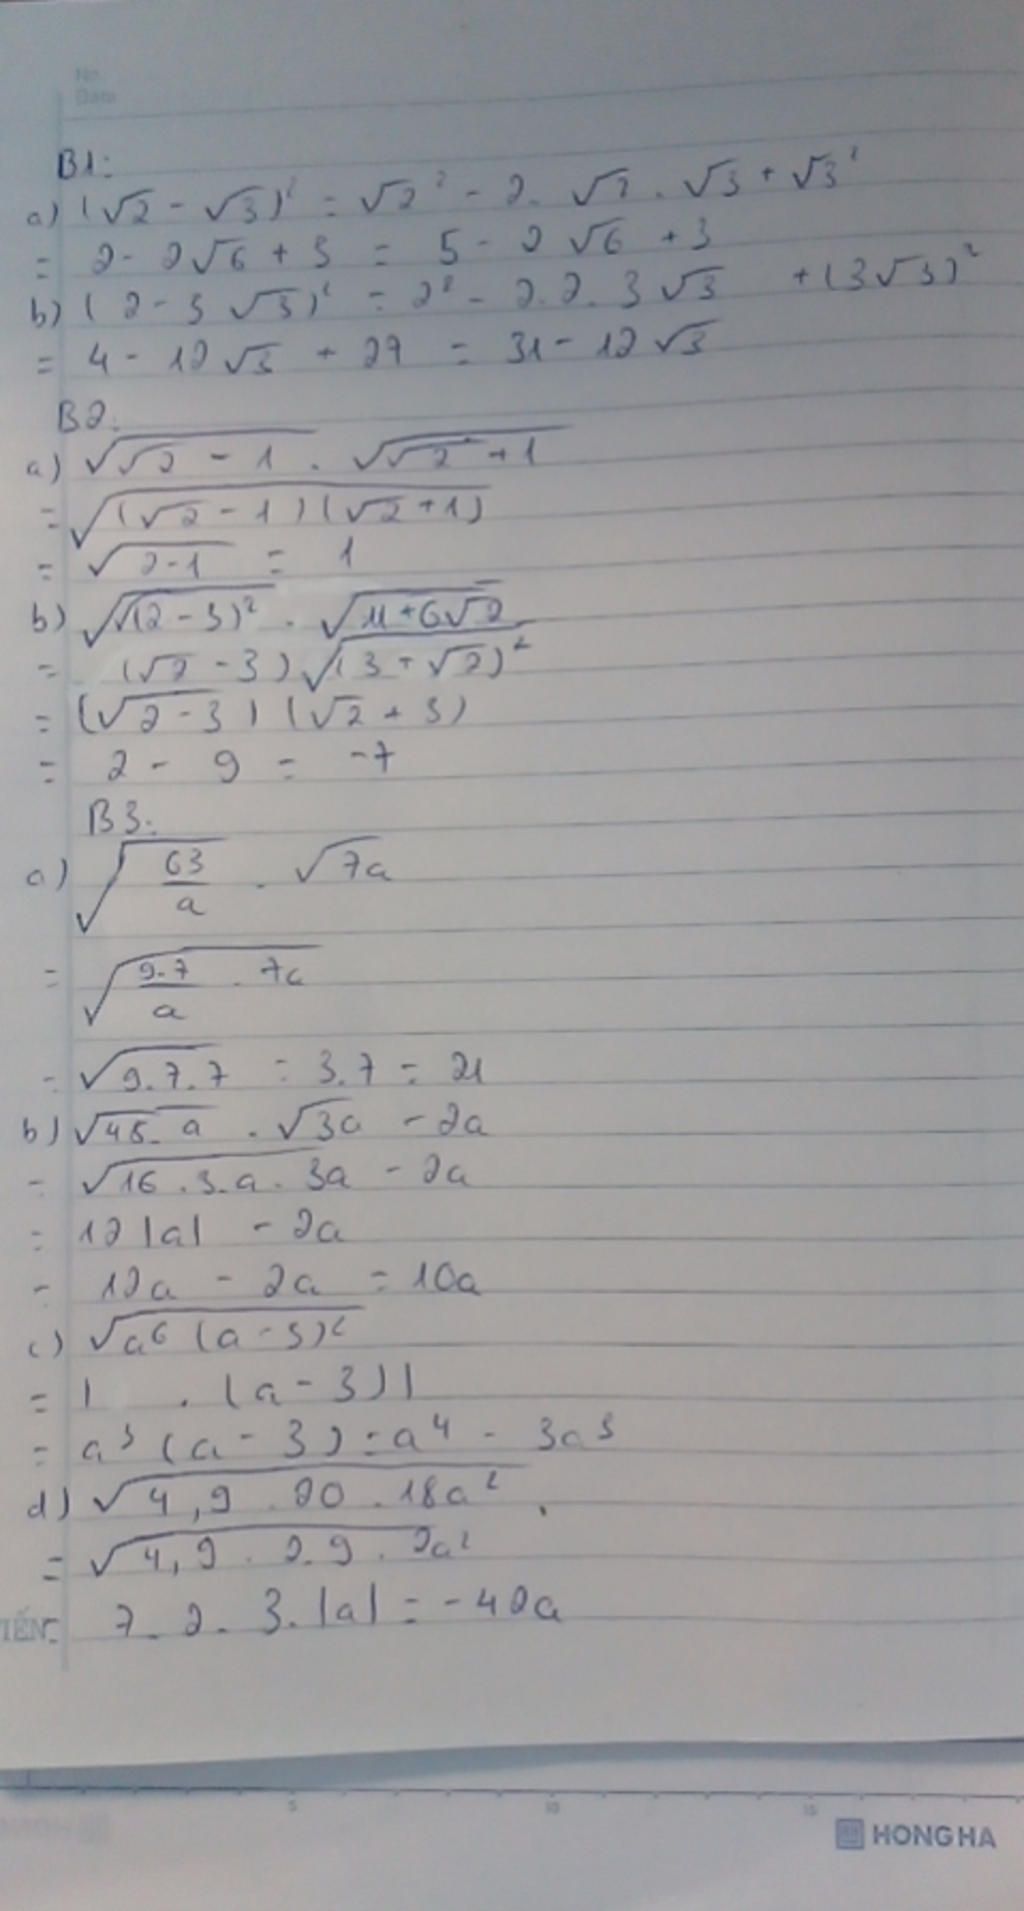 No.
Date
B1:
a) (√2 - √3)² = √2² - 2. √2 . √3 + √3²
= 2 - 2√6 + 3 = 5 - 2√6 + 3
b) (2 - 3√3)² = 2² - 2.2.3√3 + (3√3)²
= 4 - 12√3 + 27 = 31 - 12√3
B2:
a) √(√2 - 1) . √(√2 + 1)
= √((√2 - 1)(√2 + 1))
= √(2-1) = 1
b) √(√(2 - 3)²) . √(11 + 6√2)
= (√2 - 3) √(3 + √2)²
= (√2 - 3) (√2 + 3)
= 2 - 9 = -7
B3:
a) √(63/a) . √7a
= √(9.7/a . 7a)
= √9.7.7 = 3.7 = 21
b) √45.a . √3a - 2a
= √16.3.a.3a - 2a
= 12|a| - 2a
= 12a - 2a = 10a
c) √a⁶(a - 3)²
= | . (a - 3)|
= a³(a - 3) = a⁴ - 3a³
d) √4,9 . 20 . 18a²
= √4,9 . 2.9 . 2a²
7.2.3.|a| = -42a
5 10 15
HONG HA